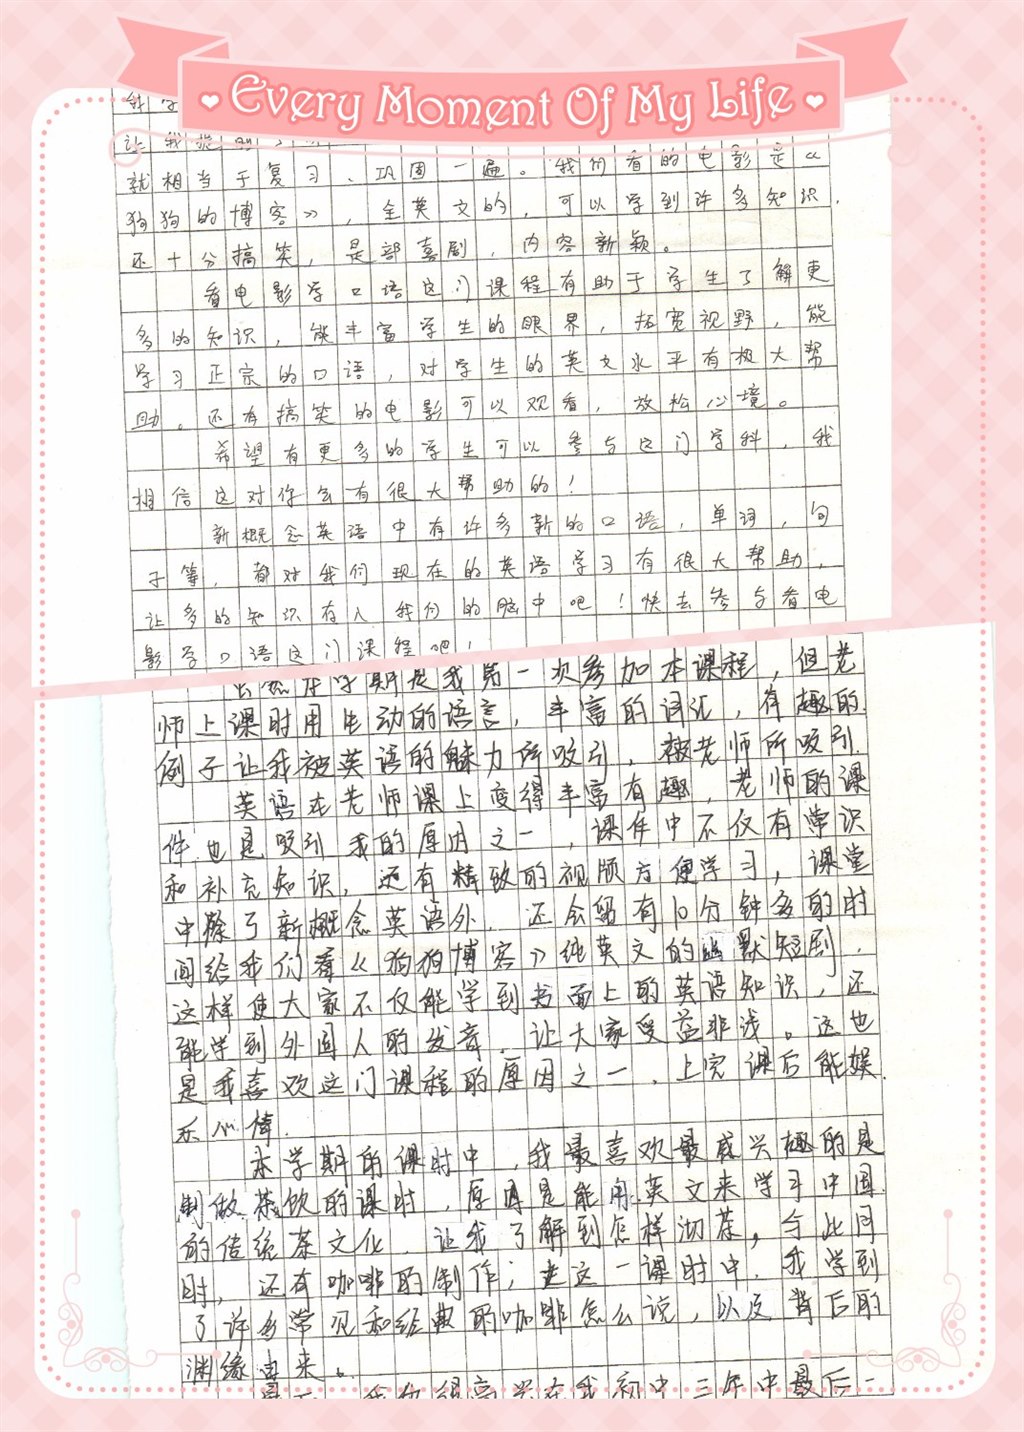 Every Moment Of My Life
让我能
就相当于复习、巩固一遍。我们看的电影是《
狗狗的博客》，全英文的，可以学到许多知识，
还十分搞笑，是部喜剧，内容新颖。
看电影学口语这门课程有助于学生了解更
多的知识，能丰富学生的眼界，拓宽视野，能
学习正宗的口语，对学生的英文水平有极大帮
助。还有搞笑的电影可以观看，放松心境。
希望有更多的学生可以参与这门学科，我
相信这对你会有很大帮助的！
新概念英语中有许多新的口语，单词，句
子等，都对我们现在的英语学习有很大帮助，
让多的知识存入我们的脑中吧！快去参与看电
影学口语这门课程吧！
虽然本学期是我第一次参加本课程，但老
师上课时用生动的语言，丰富的词汇，有趣的
例子让我被英语的魅力所吸引，被老师所吸引.
英语在老师课上变得丰富有趣，老师的课
件也是吸引我的原因之一，课件中不仅有常识
和补充知识，还有精致的视频方便学习，课堂
中除了新概念英语外，还会留有10分钟多的时
间给我们看《狗狗博客》纯英文的幽默短剧，
这样使大家不仅能学到书面上的英语知识，还
能学到外国人的发音，让大家受益非浅。这也
是我喜欢这门课程的原因之一，上完课后能娱
乐心情.
本学期的课时中，我最喜欢最感兴趣的是
制做茶饮的课时，原因是能用英文来学习中国
的传统茶文化，让我了解到怎样沏茶，与此同
时，还有咖啡的制作；在这一课时中，我学到
了许多常见和经典的咖啡怎么说，以及背后的
渊缘由来。
我们很高兴在我初中三年中最后一